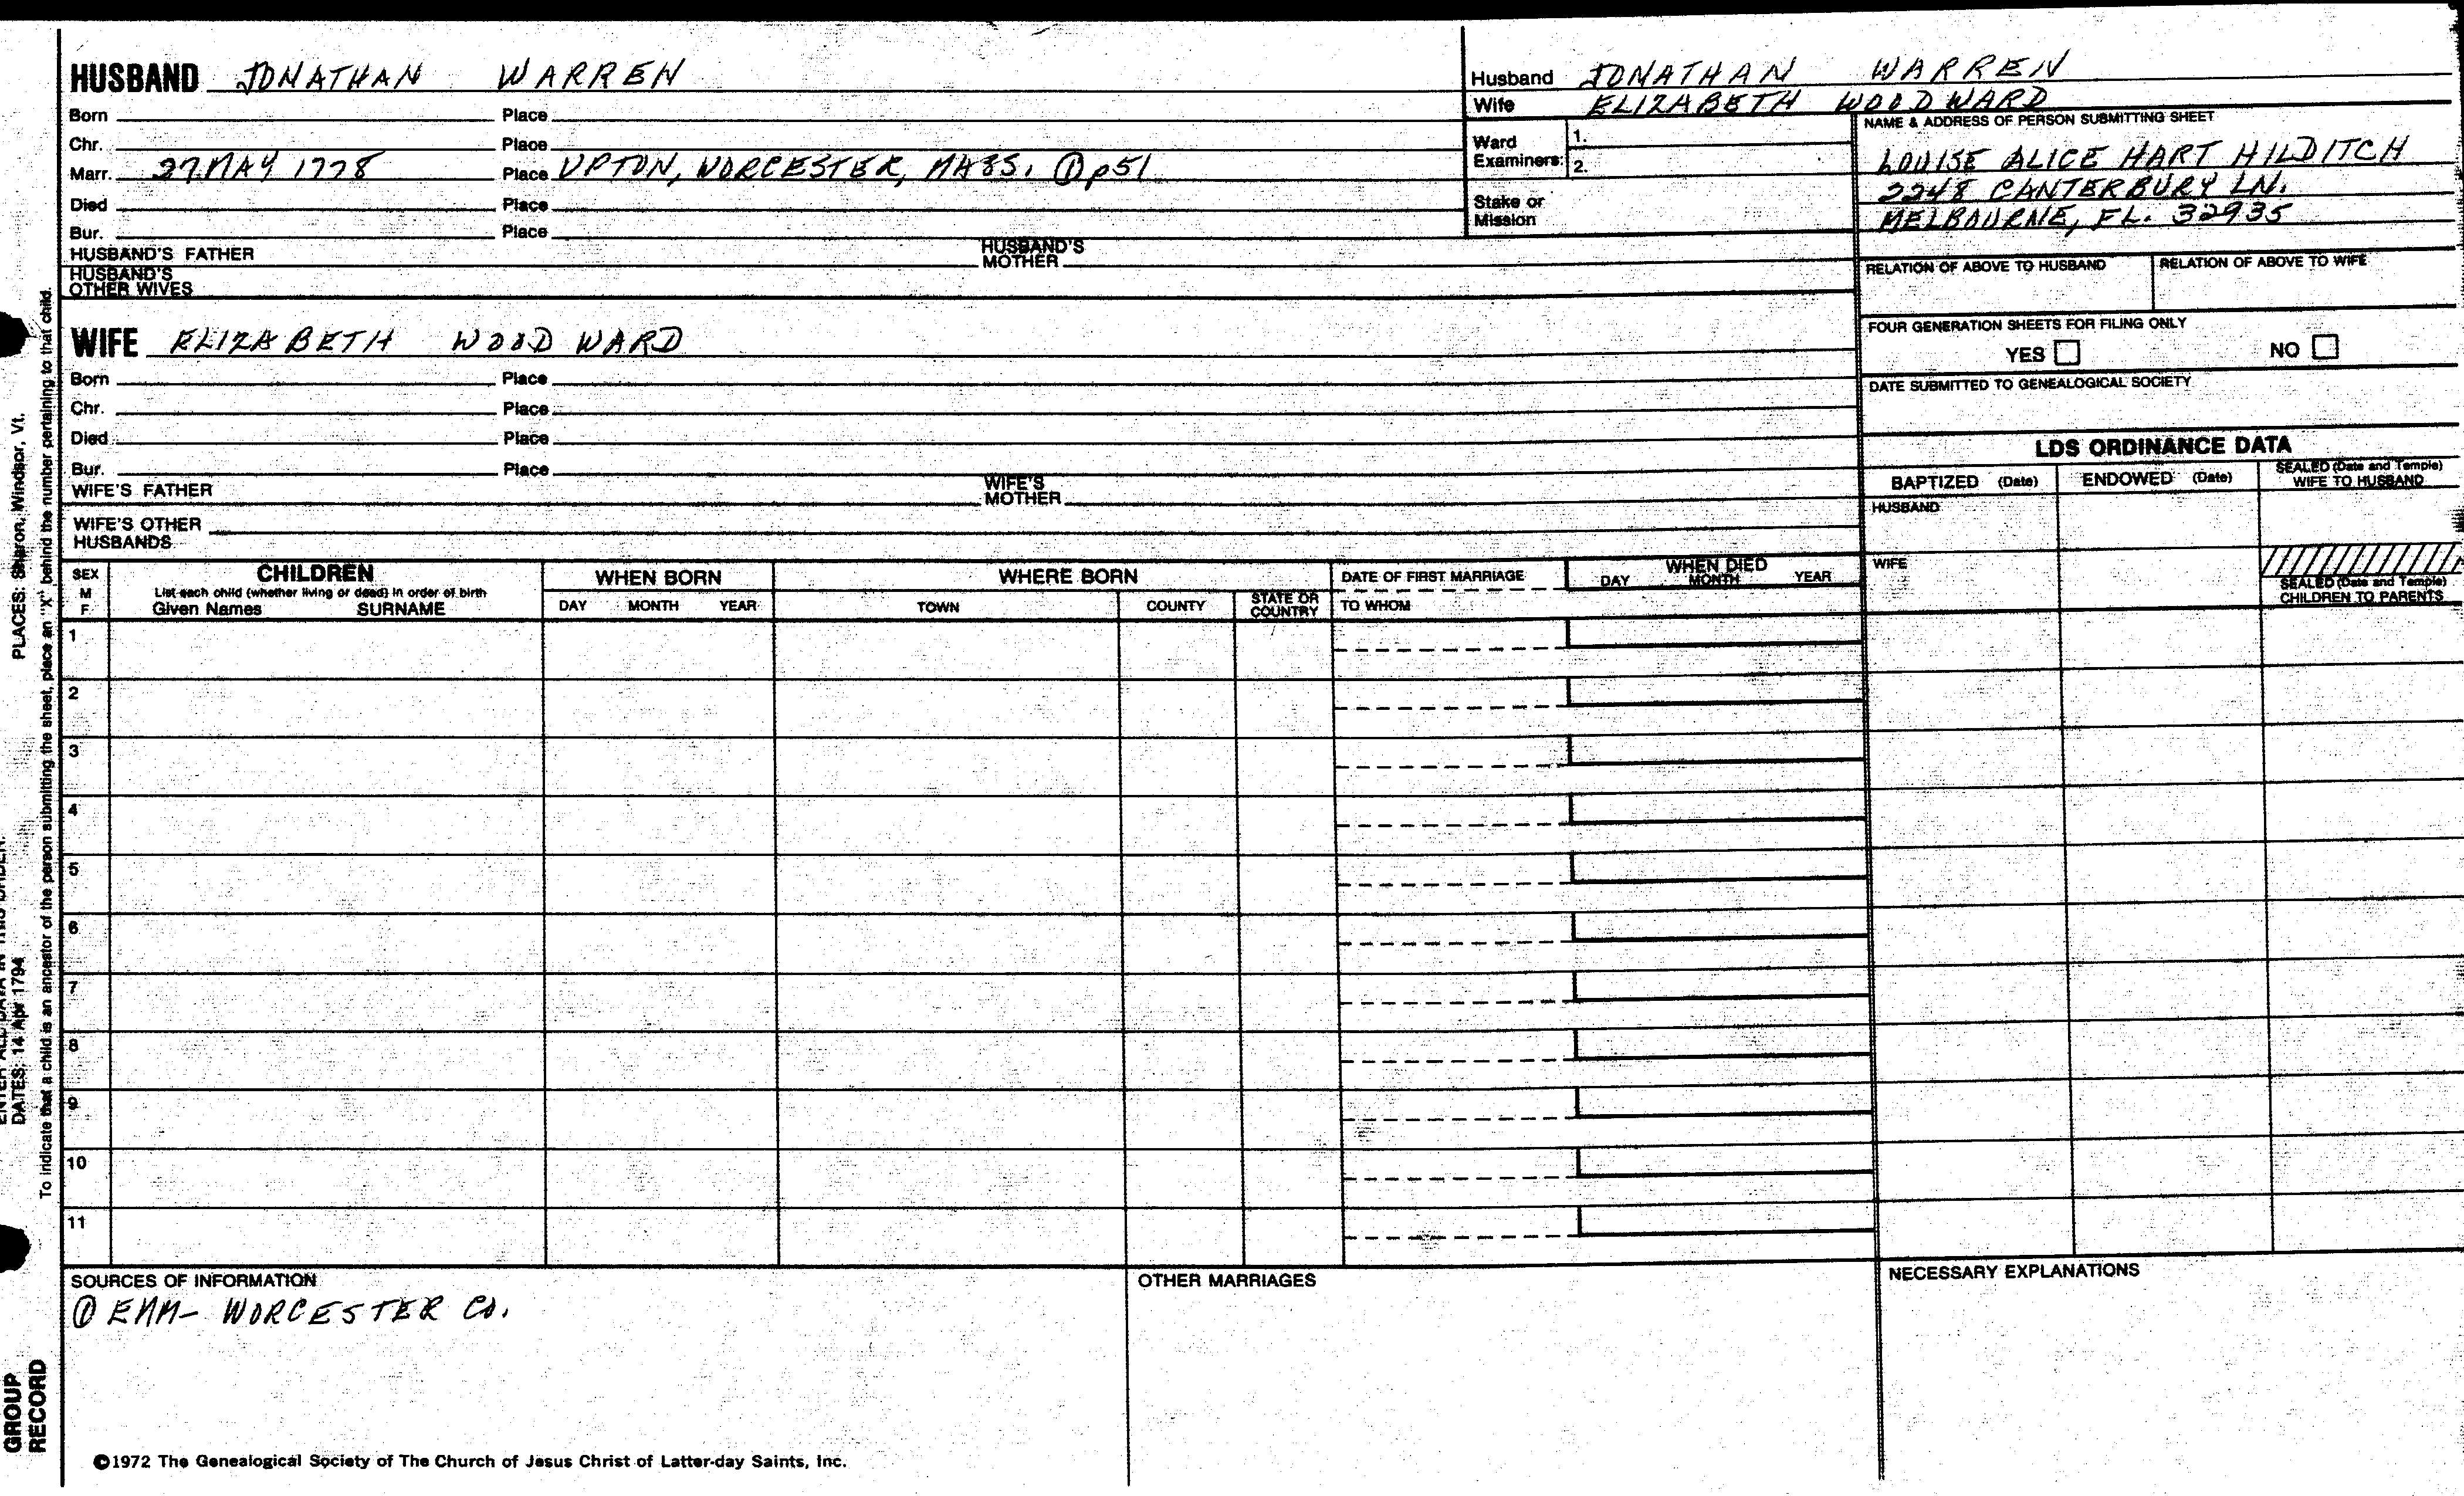 HUSBAND JONATHAN WARREN
Born Place
Chr. Place
Marr. 27 MAY 1778 Place UPTON, WORCESTER, MASS. ① p51
Died Place
Bur. Place
HUSBAND'S FATHER HUSBAND'S MOTHER
HUSBAND'S OTHER WIVES
Husband JONATHAN WARREN
Wife ELIZABETH WOODWARD
Ward Examiners: 1.
2.
Stake or Mission
NAME & ADDRESS OF PERSON SUBMITTING SHEET
LOUISE ALICE HART HILDITCH
2248 CANTERBURY LN.
MELBOURNE, FL. 32935
RELATION OF ABOVE TO HUSBAND RELATION OF ABOVE TO WIFE
FOUR GENERATION SHEETS FOR FILING ONLY
YES NO
DATE SUBMITTED TO GENEALOGICAL SOCIETY
WIFE ELIZABETH WOODWARD
Born Place
Chr. Place
Died Place
Bur. Place
WIFE'S FATHER WIFE'S MOTHER
WIFE'S OTHER HUSBANDS
LDS ORDINANCE DATA
BAPTIZED (Date) ENDOWED (Date) SEALED (Date and Temple) WIFE TO HUSBAND
HUSBAND
WIFE
SEALED (Date and Temple) CHILDREN TO PARENTS
SEX M F
CHILDREN
List each child (whether living or dead) in order of birth
Given Names SURNAME
WHEN BORN
DAY MONTH YEAR
WHERE BORN
TOWN COUNTY STATE OR COUNTRY
DATE OF FIRST MARRIAGE
TO WHOM
WHEN DIED
DAY MONTH YEAR
1
2
3
4
5
6
7
8
9
10
11
SOURCES OF INFORMATION
① EMM- WORCESTER CO.
OTHER MARRIAGES
NECESSARY EXPLANATIONS
©1972 The Genealogical Society of The Church of Jesus Christ of Latter-day Saints, Inc.
To indicate that a child is an ancestor of the person submitting the sheet, place an "X" behind the number pertaining to that child.
PLACES: Sharon, Windsor, Vt.
DATES: 14 Apr 1794
GROUP
RECORD